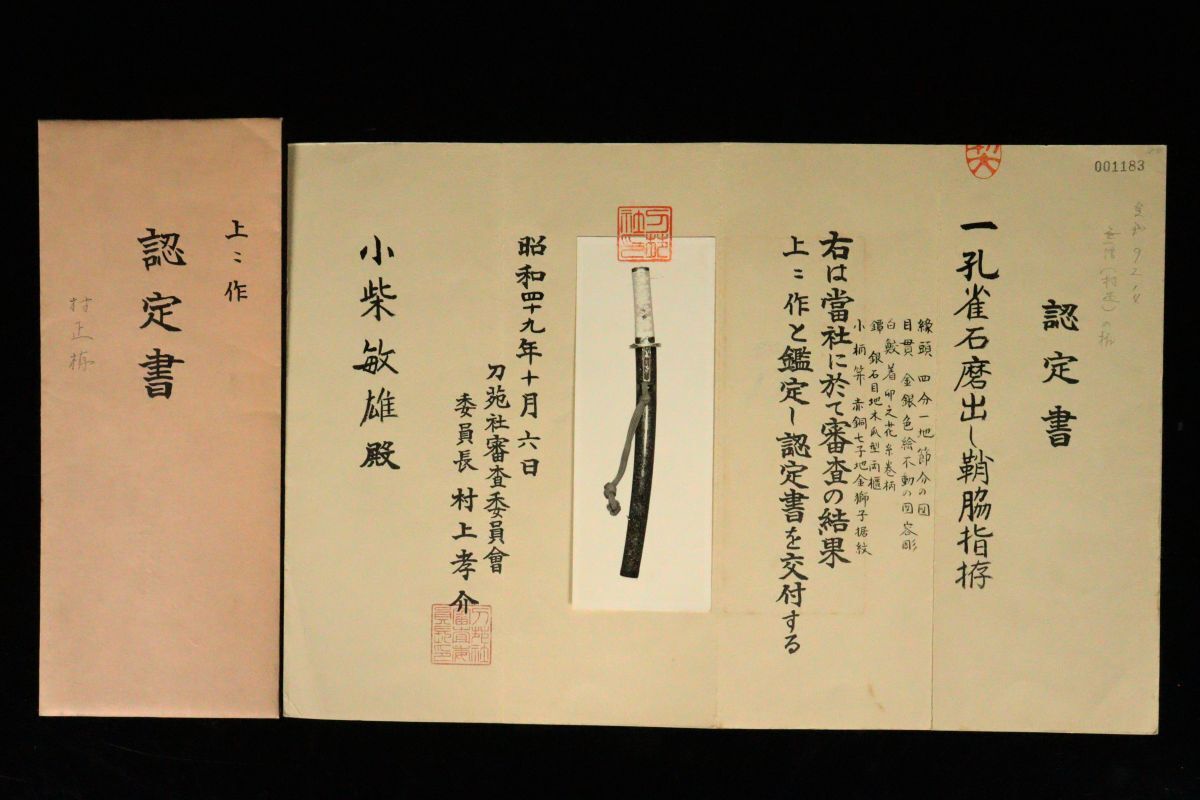 上ミ作
認定書
001183
認定書
一孔雀石磨出し鞘脇指拵
縁頭 四分一地節分の図
目貫 金銀色絵不動の図容彫
白鮫着卯之花糸巻柄
鐔 銀石目地木瓜型両櫃
小柄笄 赤銅七子地金獅子据紋
右は當社に於て審査の結果
上ミ作と鑑定し認定書を交付する
昭和四十九年十月六日
刀苑社審査委員會
委員長 村上孝介
小柴敏雄殿
刀苑社印